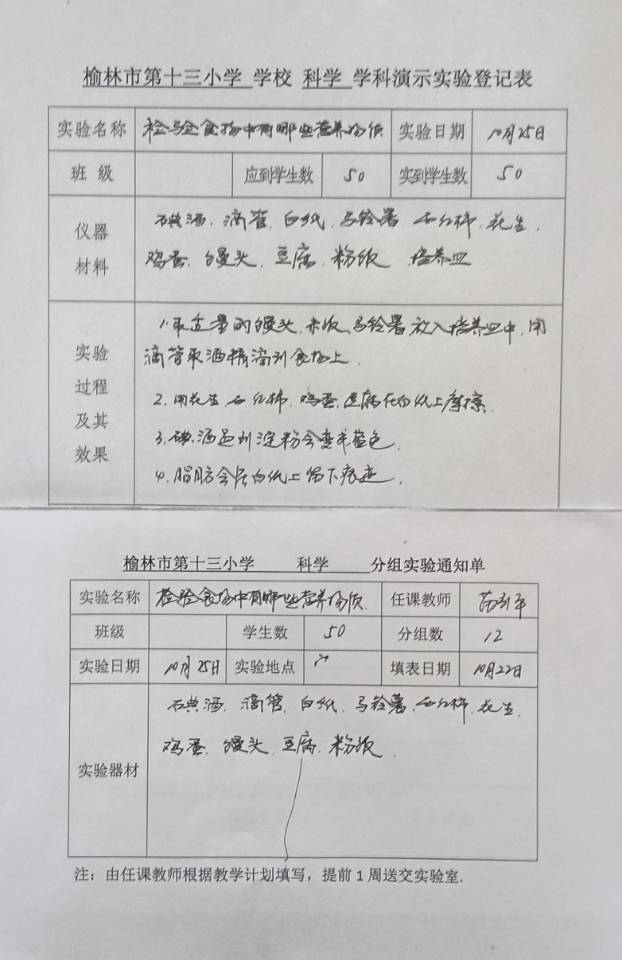 榆林市第十三小学 学校 科学 学科演示实验登记表
实验名称 检验食物中有哪些营养物质 实验日期 10月25日
班 级 应到学生数 50 实到学生数 50
仪器
材料
碘酒、滴管、白纸、马铃薯 西红柿、花生、
鸡蛋、馒头、豆腐、粉饭 培养皿
实验
过程
及其
效果
1.取适量的馒头、米饭、马铃薯放入培养皿中,用
滴管取酒精滴到食物上
2.用花生、西红柿、鸡蛋、豆腐在白纸上摩擦
3.碘酒遇到淀粉会变成蓝色
4.脂肪会在白纸上留下痕迹.
榆林市第十三小学 科学 分组实验通知单
实验名称 检验食物中有哪些营养物质 任课教师
班级 学生数 50 分组数 12
实验日期 10月25日 实验地点 填表日期 10月22日
实验器材
碘酒、滴管、白纸、马铃薯、西红柿、花生
鸡蛋、馒头、豆腐、粉饭
注：由任课教师根据教学计划填写，提前1周送交实验室.